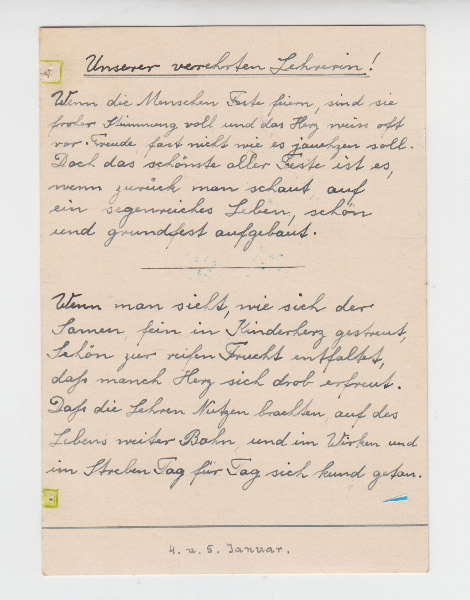 Unserer verehrten Lehrerin!
Wenn die Menschen Feste feiern, sind sie
froher Stimmung voll und das Herz weiss oft
vor Freude fast nicht wie es jauchzen soll.
Doch das schönste aller Feste ist es,
wenn zurück man schaut auf
ein segenreiches Leben, schön
und grundfest aufgebaut.
Wenn man sieht, wie sich der
Samen, fein in Kinderherz gestreut,
Schön zur reifen Frucht entfaltet,
daß manch Herz sich drob erfreut.
Daß die Lehren Nutzen brachten, auf des
Lebens weiter Bahn, und im Wirken und
im Streben Tag für Tag sich kund getan.
4. u. 5. Januar.